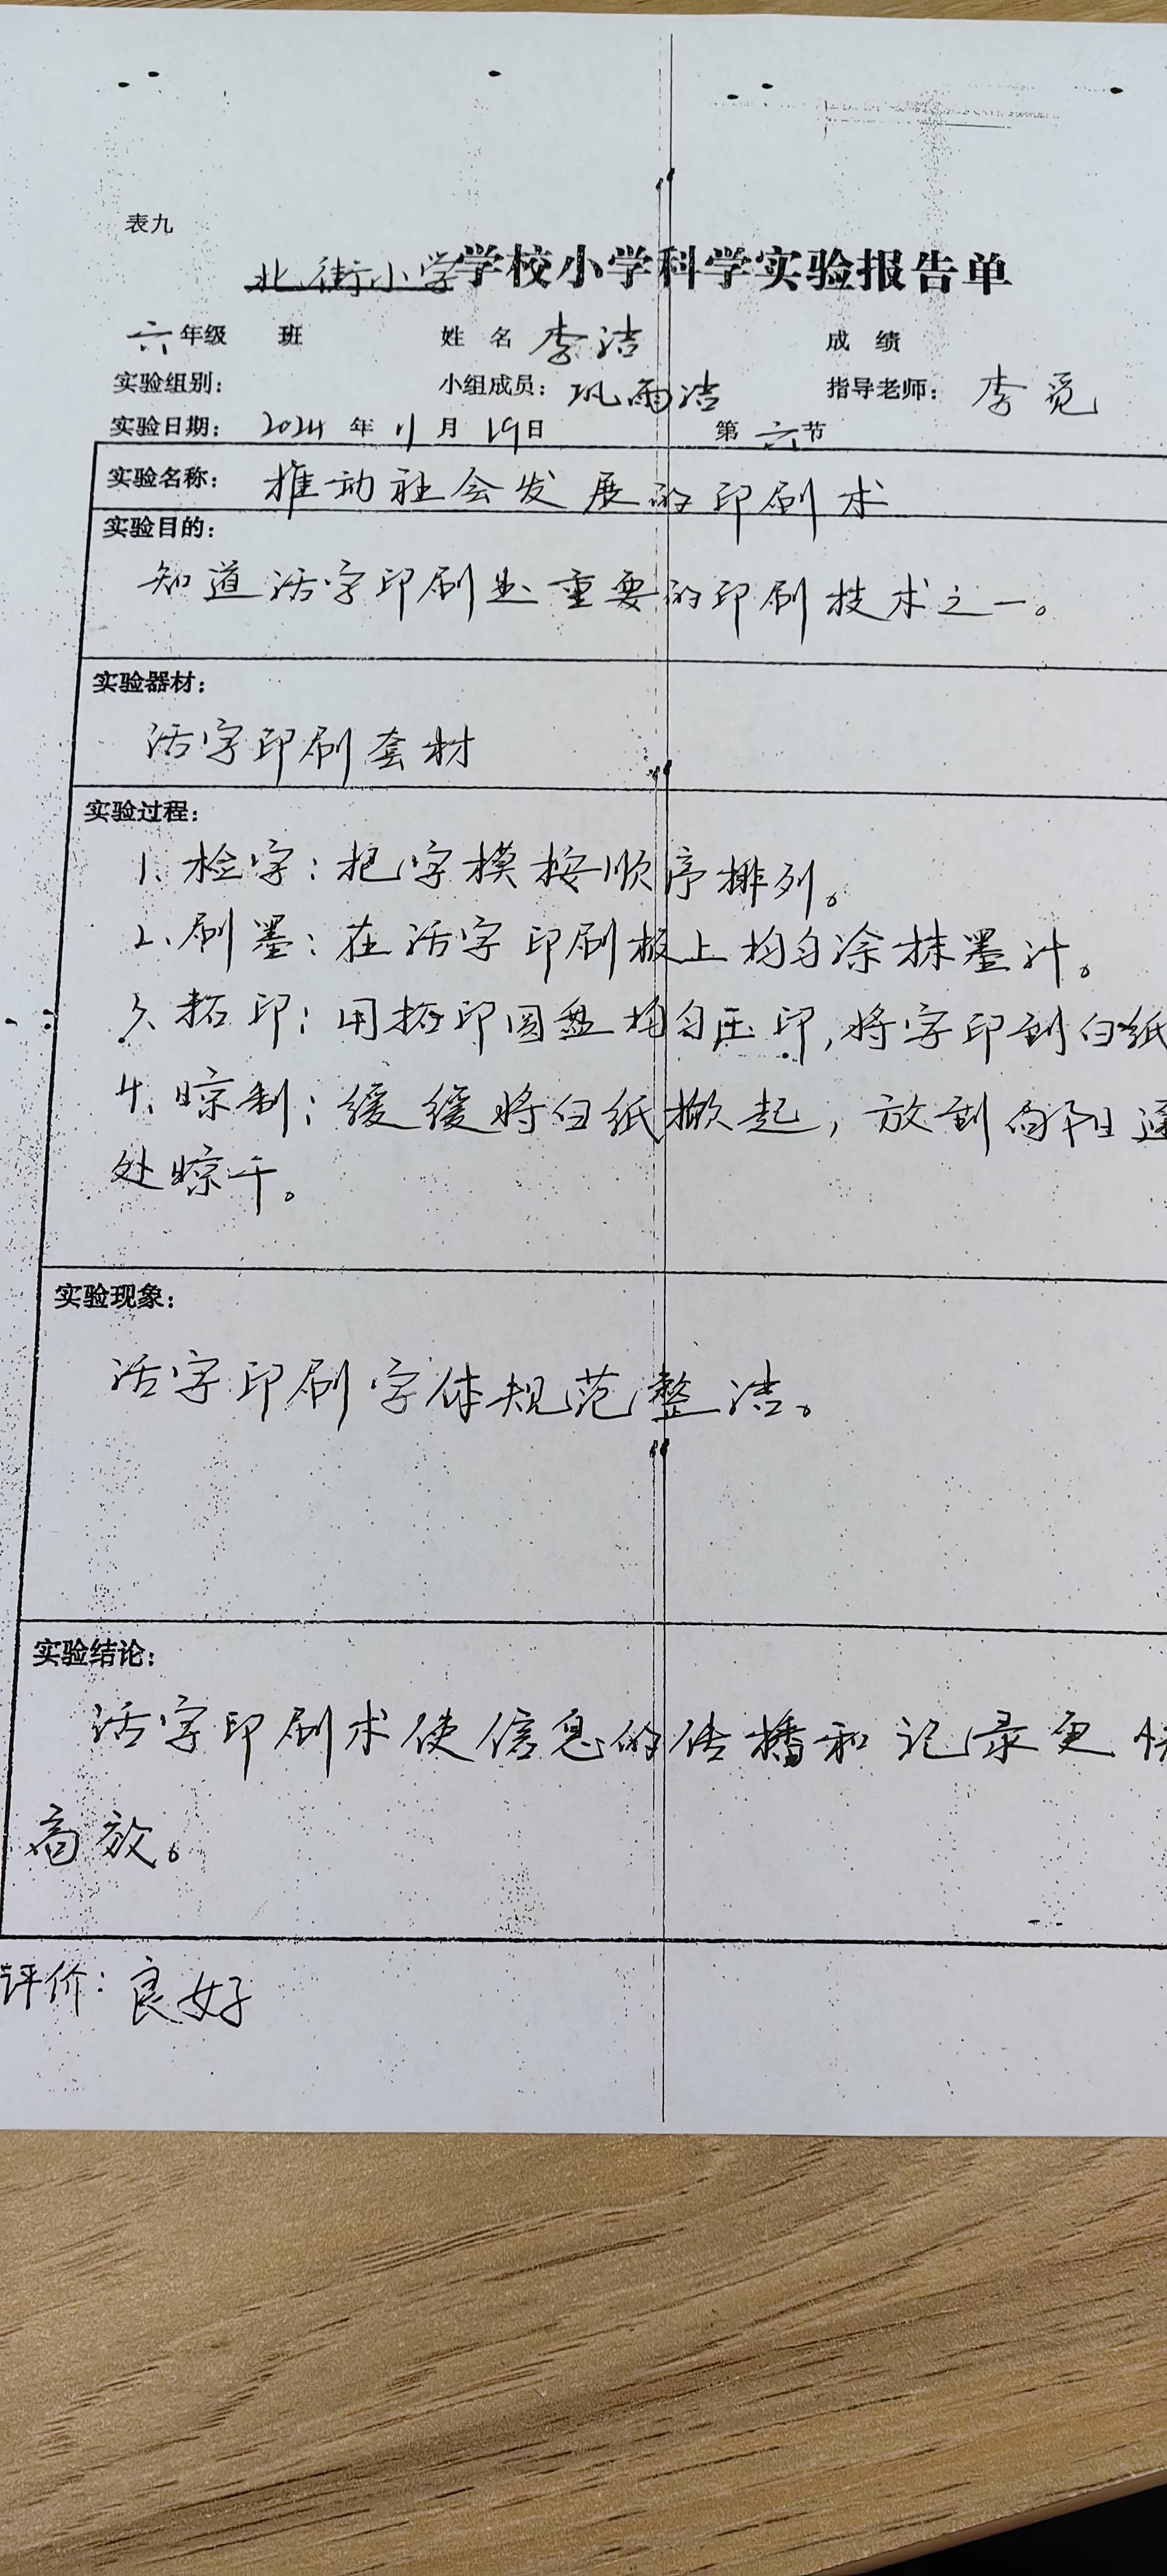 表九
北街小学学校小学科学实验报告单
六年级 班 姓 名 李洁 成 绩
实验组别： 小组成员：巩雨洁 指导老师：李觅
实验日期：2024 年 11 月 19日 第 六 节
实验名称：推动社会发展的印刷术
实验目的：
知道活字印刷是重要的印刷技术之一。
实验器材：
活字印刷套材
实验过程：
1、检字：把字模按顺序排列。
2、刷墨：在活字印刷板上均匀涂抹墨汁。
3、拓印：用拓印圆盘均匀压印，将字印到白纸
4、晾制：缓缓将白纸掀起，放到向阳通
处晾干。
实验现象：
活字印刷字体规范整洁。
实验结论：
活字印刷术使信息的传播和记录更
高效。
评价：良好